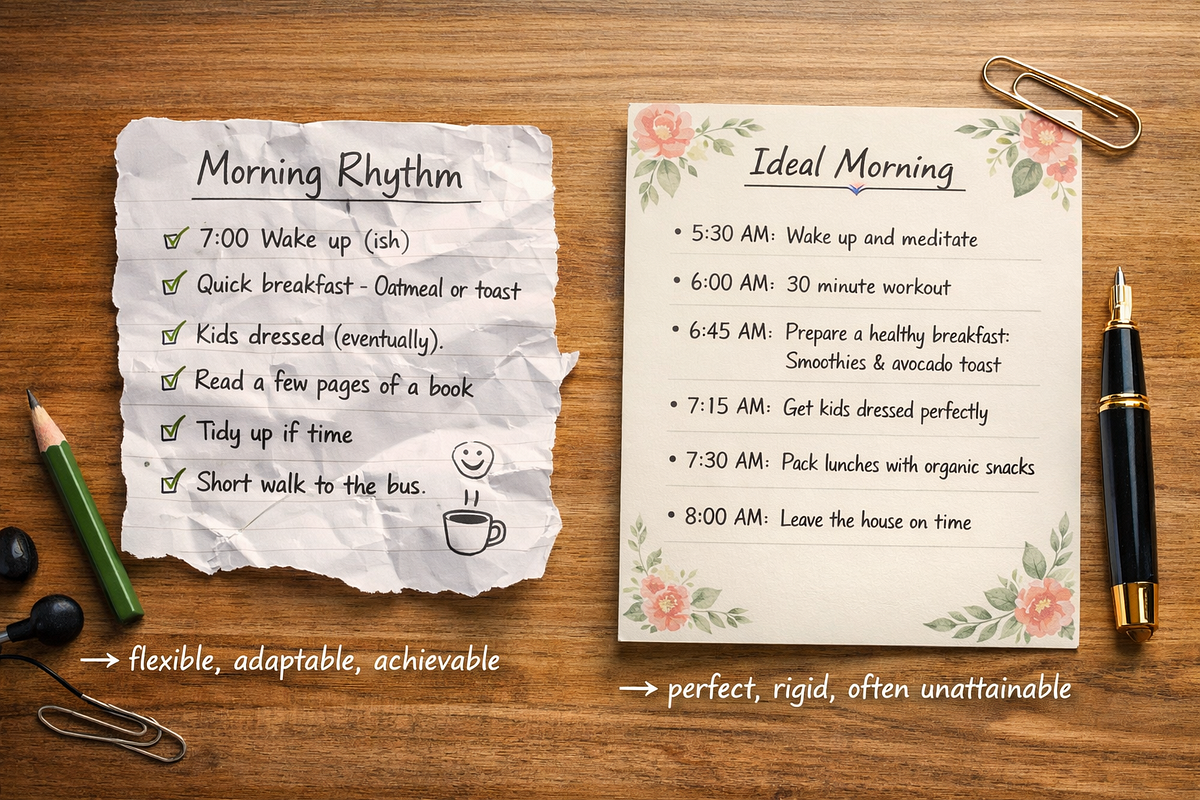 Morning Rhythm
7:00 Wake up (ish)
Quick breakfast - Oatmeal or toast
Kids dressed (eventually).
Read a few pages of a book
Tidy up if time
Short walk to the bus.
→ flexible, adaptable, achievable
Ideal Morning
• 5:30 AM: Wake up and meditate
• 6:00 AM: 30 minute workout
• 6:45 AM: Prepare a healthy breakfast:
Smoothies & avocado toast
• 7:15 AM: Get kids dressed perfectly
• 7:30 AM: Pack lunches with organic snacks
• 8:00 AM: Leave the house on time
→ perfect, rigid, often unattainable